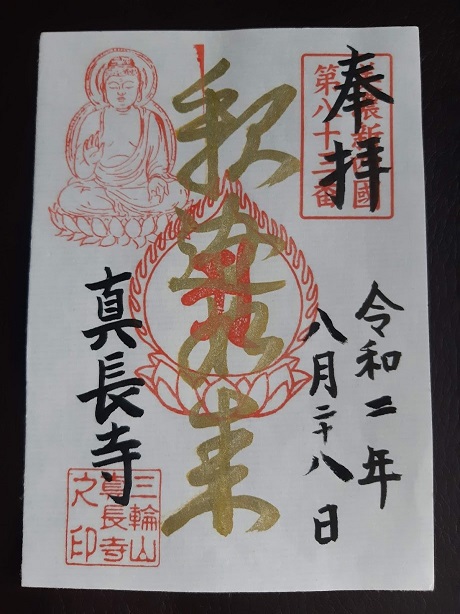 奉拝
美濃新四國
第八十三番
令和二年
八月二十八日
釈迦如来
真長寺
三輪山
真長寺
之印